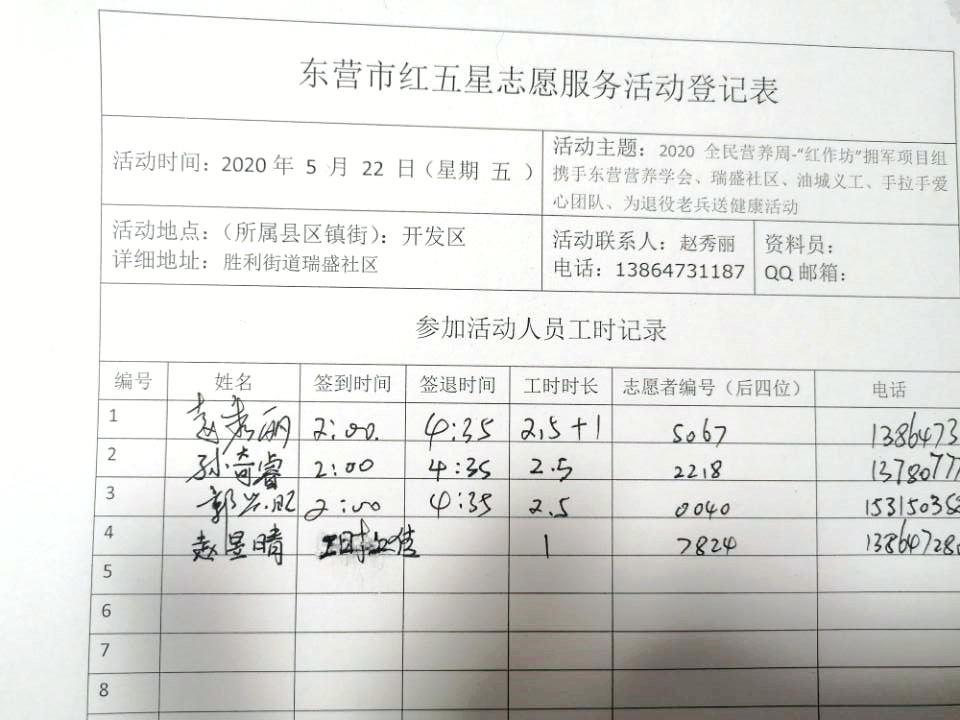 东营市红五星志愿服务活动登记表
活动时间：2020 年 5 月 22 日（星期 五 ）
活动主题：2020 全民营养周-“红作坊”拥军项目组
携手东营营养学会、瑞盛社区、油城义工、手拉手爱
心团队、为退役老兵送健康活动
活动地点：（所属县区镇街）：开发区
详细地址：胜利街道瑞盛社区
活动联系人：赵秀丽
电话：13864731187
资料员：
QQ 邮箱：
参加活动人员工时记录
编号 姓名 签到时间 签退时间 工时时长 志愿者编号（后四位） 电话
1 赵秀丽 2:00. 4:35 2.5+1 5067 1386473
2 孙奇睿 2:00 4:35 2.5 2218 1378077
3 郭兴旺 2:00 4:35 2.5 0040 15315035
4 赵昱晴 1 7824 138647280
5
6
7
8